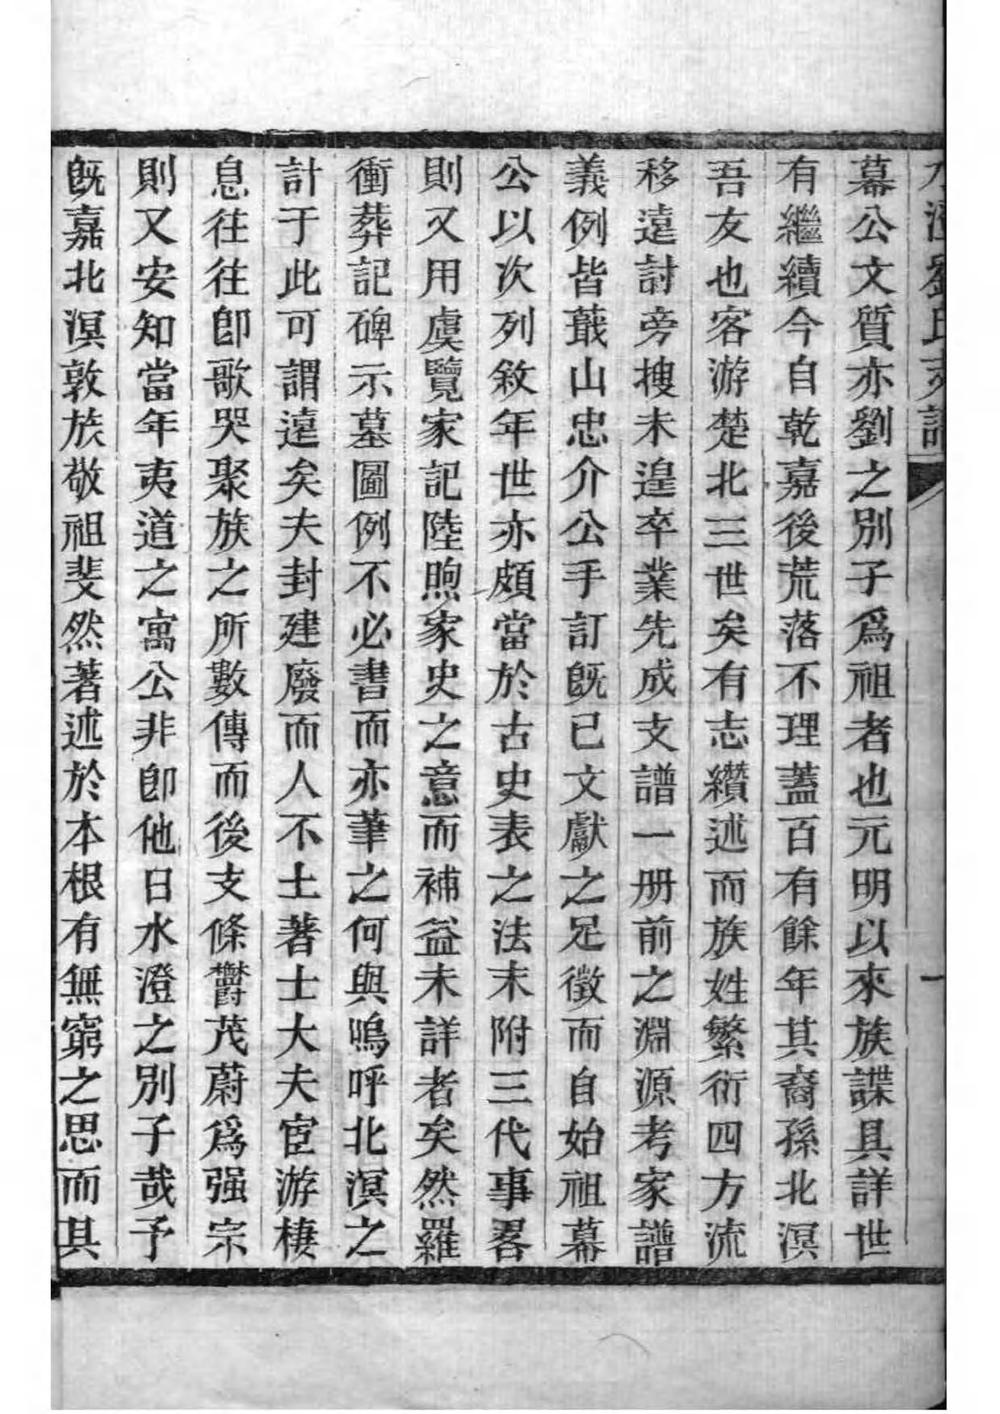 水澄劉氏支譜
一
幕公文質亦劉之別子爲祖者也元明以來族諜具詳世
有繼續今自乾嘉後荒落不理蓋百有餘年其裔孫北溟
吾友也客游楚北三世矣有志纘述而族姓繁衍四方流
移遠討旁搜未遑卒業先成支譜一册前之淵源考家譜
義例皆蕺山忠介公手訂旣已文獻之足徵而自始祖幕
公以次列敘年世亦頗當於古史表之法末附三代事畧
則又用虞覽家記陸煦家史之意而補益未詳者矣然羅
衝葬記碑示墓圖例不必書而亦葦之何與嗚呼北溟之
計于此可謂遠矣夫封建廢而人不土著士大夫宦游棲
息往往卽歌哭聚族之所數傳而後支條欝茂蔚爲强宗
則又安知當年夷道之寓公非卽他日水澄之別子哉予
旣嘉北溟敦族敬祖斐然著述於本根有無窮之思而其